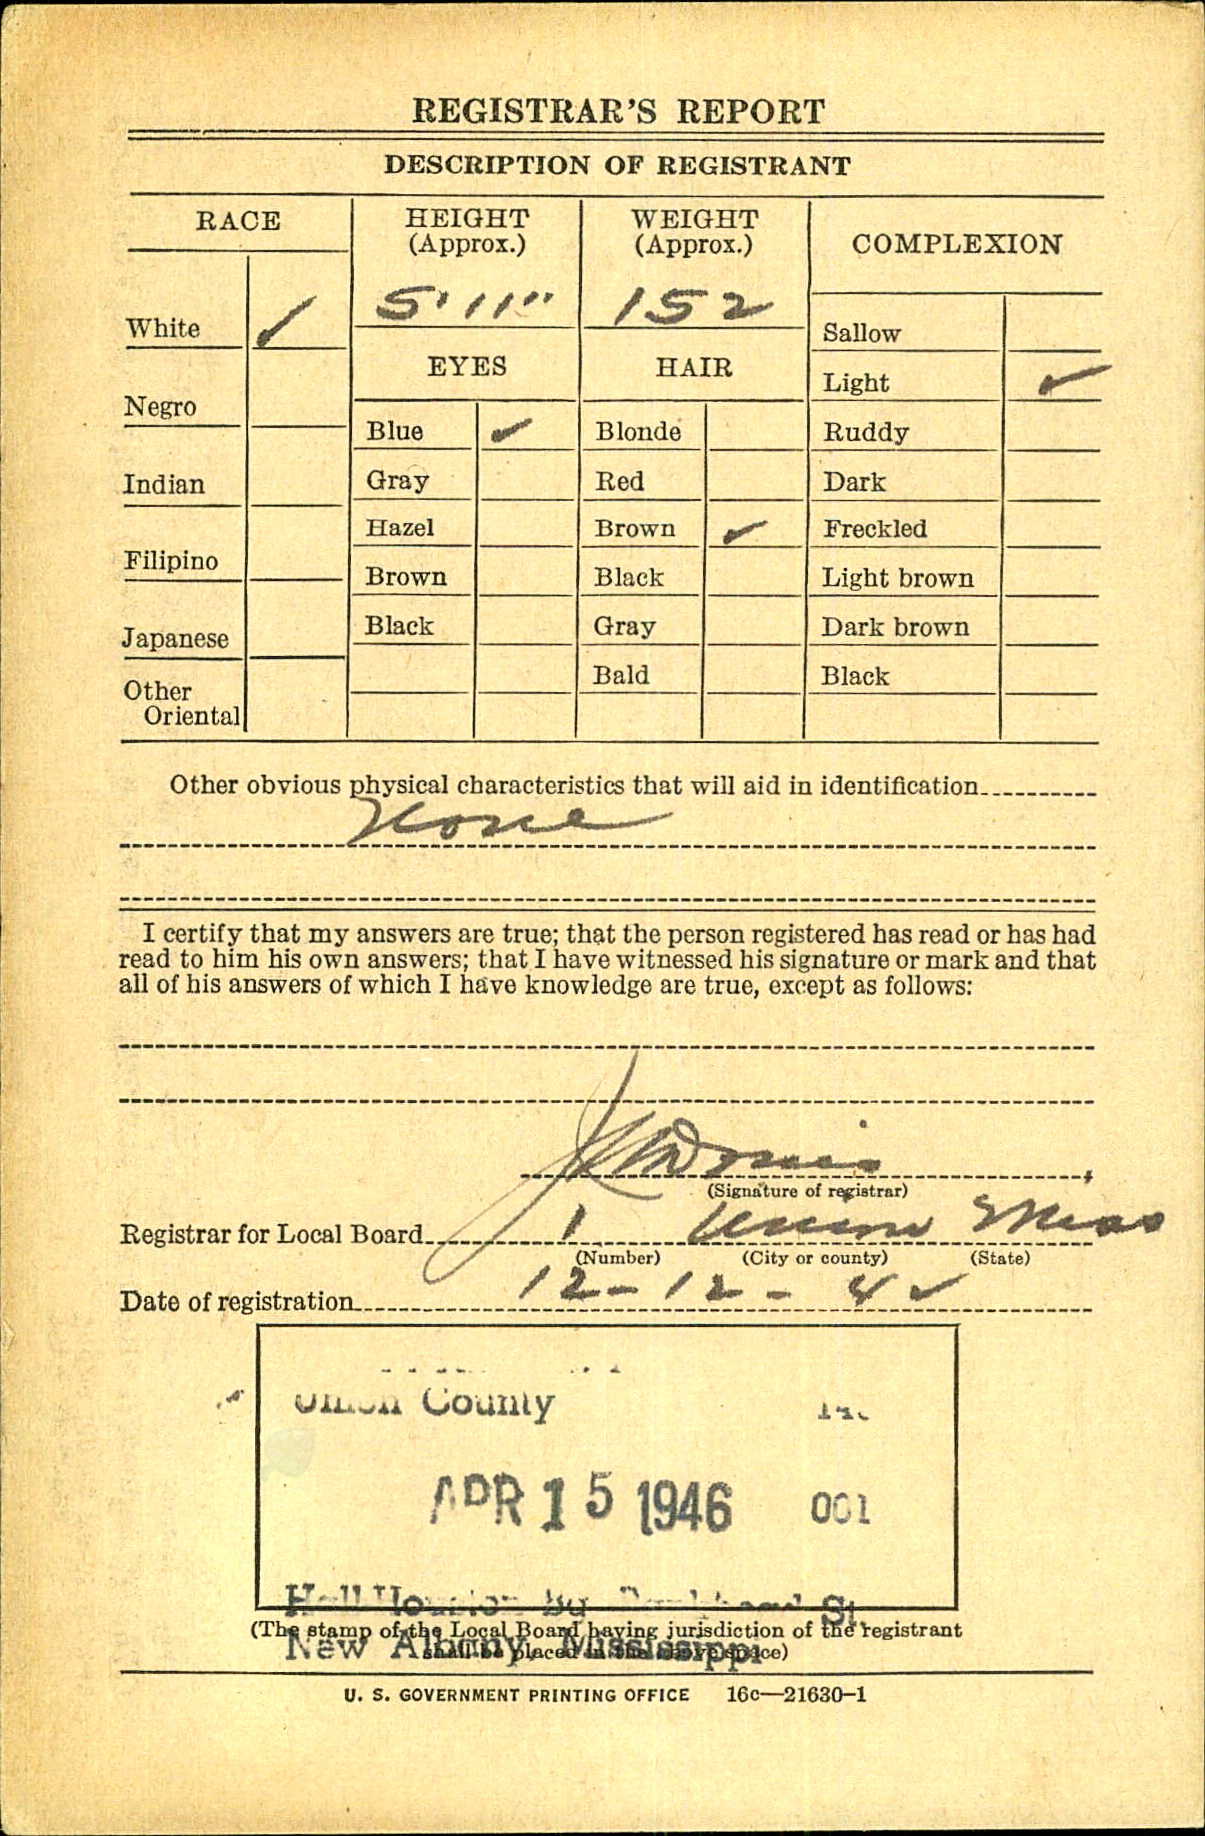 REGISTRAR'S REPORT
DESCRIPTION OF REGISTRANT
RACE
HEIGHT
(Approx.)
WEIGHT
(Approx.)
COMPLEXION
5' 11"
152
White ✓
Sallow
EYES
HAIR
Light ✓
Negro
Blue ✓
Blonde
Ruddy
Indian
Gray
Red
Dark
Hazel
Brown ✓
Freckled
Filipino
Brown
Black
Light brown
Japanese
Black
Gray
Dark brown
Other
Oriental
Bald
Black
Other obvious physical characteristics that will aid in identification
None
I certify that my answers are true; that the person registered has read or has had
read to him his own answers; that I have witnessed his signature or mark and that
all of his answers of which I have knowledge are true, except as follows:
(Signature of registrar)
Registrar for Local Board 1 Union Miss
(Number) (City or county) (State)
Date of registration 12-12-42
Union County
APR 15 1946 001
St.
(The stamp of the Local Board having jurisdiction of the registrant
New Albany, Mississippi
shall be placed in the above space)
U. S. GOVERNMENT PRINTING OFFICE 16c—21630-1